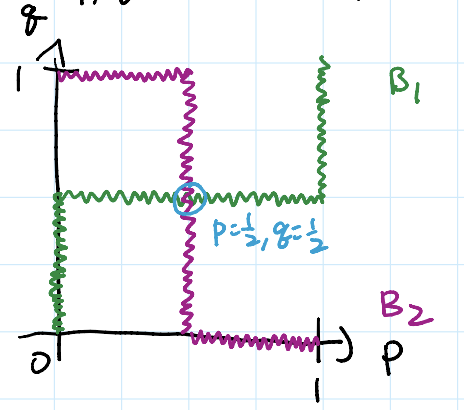 q
1
B₁
p=½, q=½
B₂
0
1
p